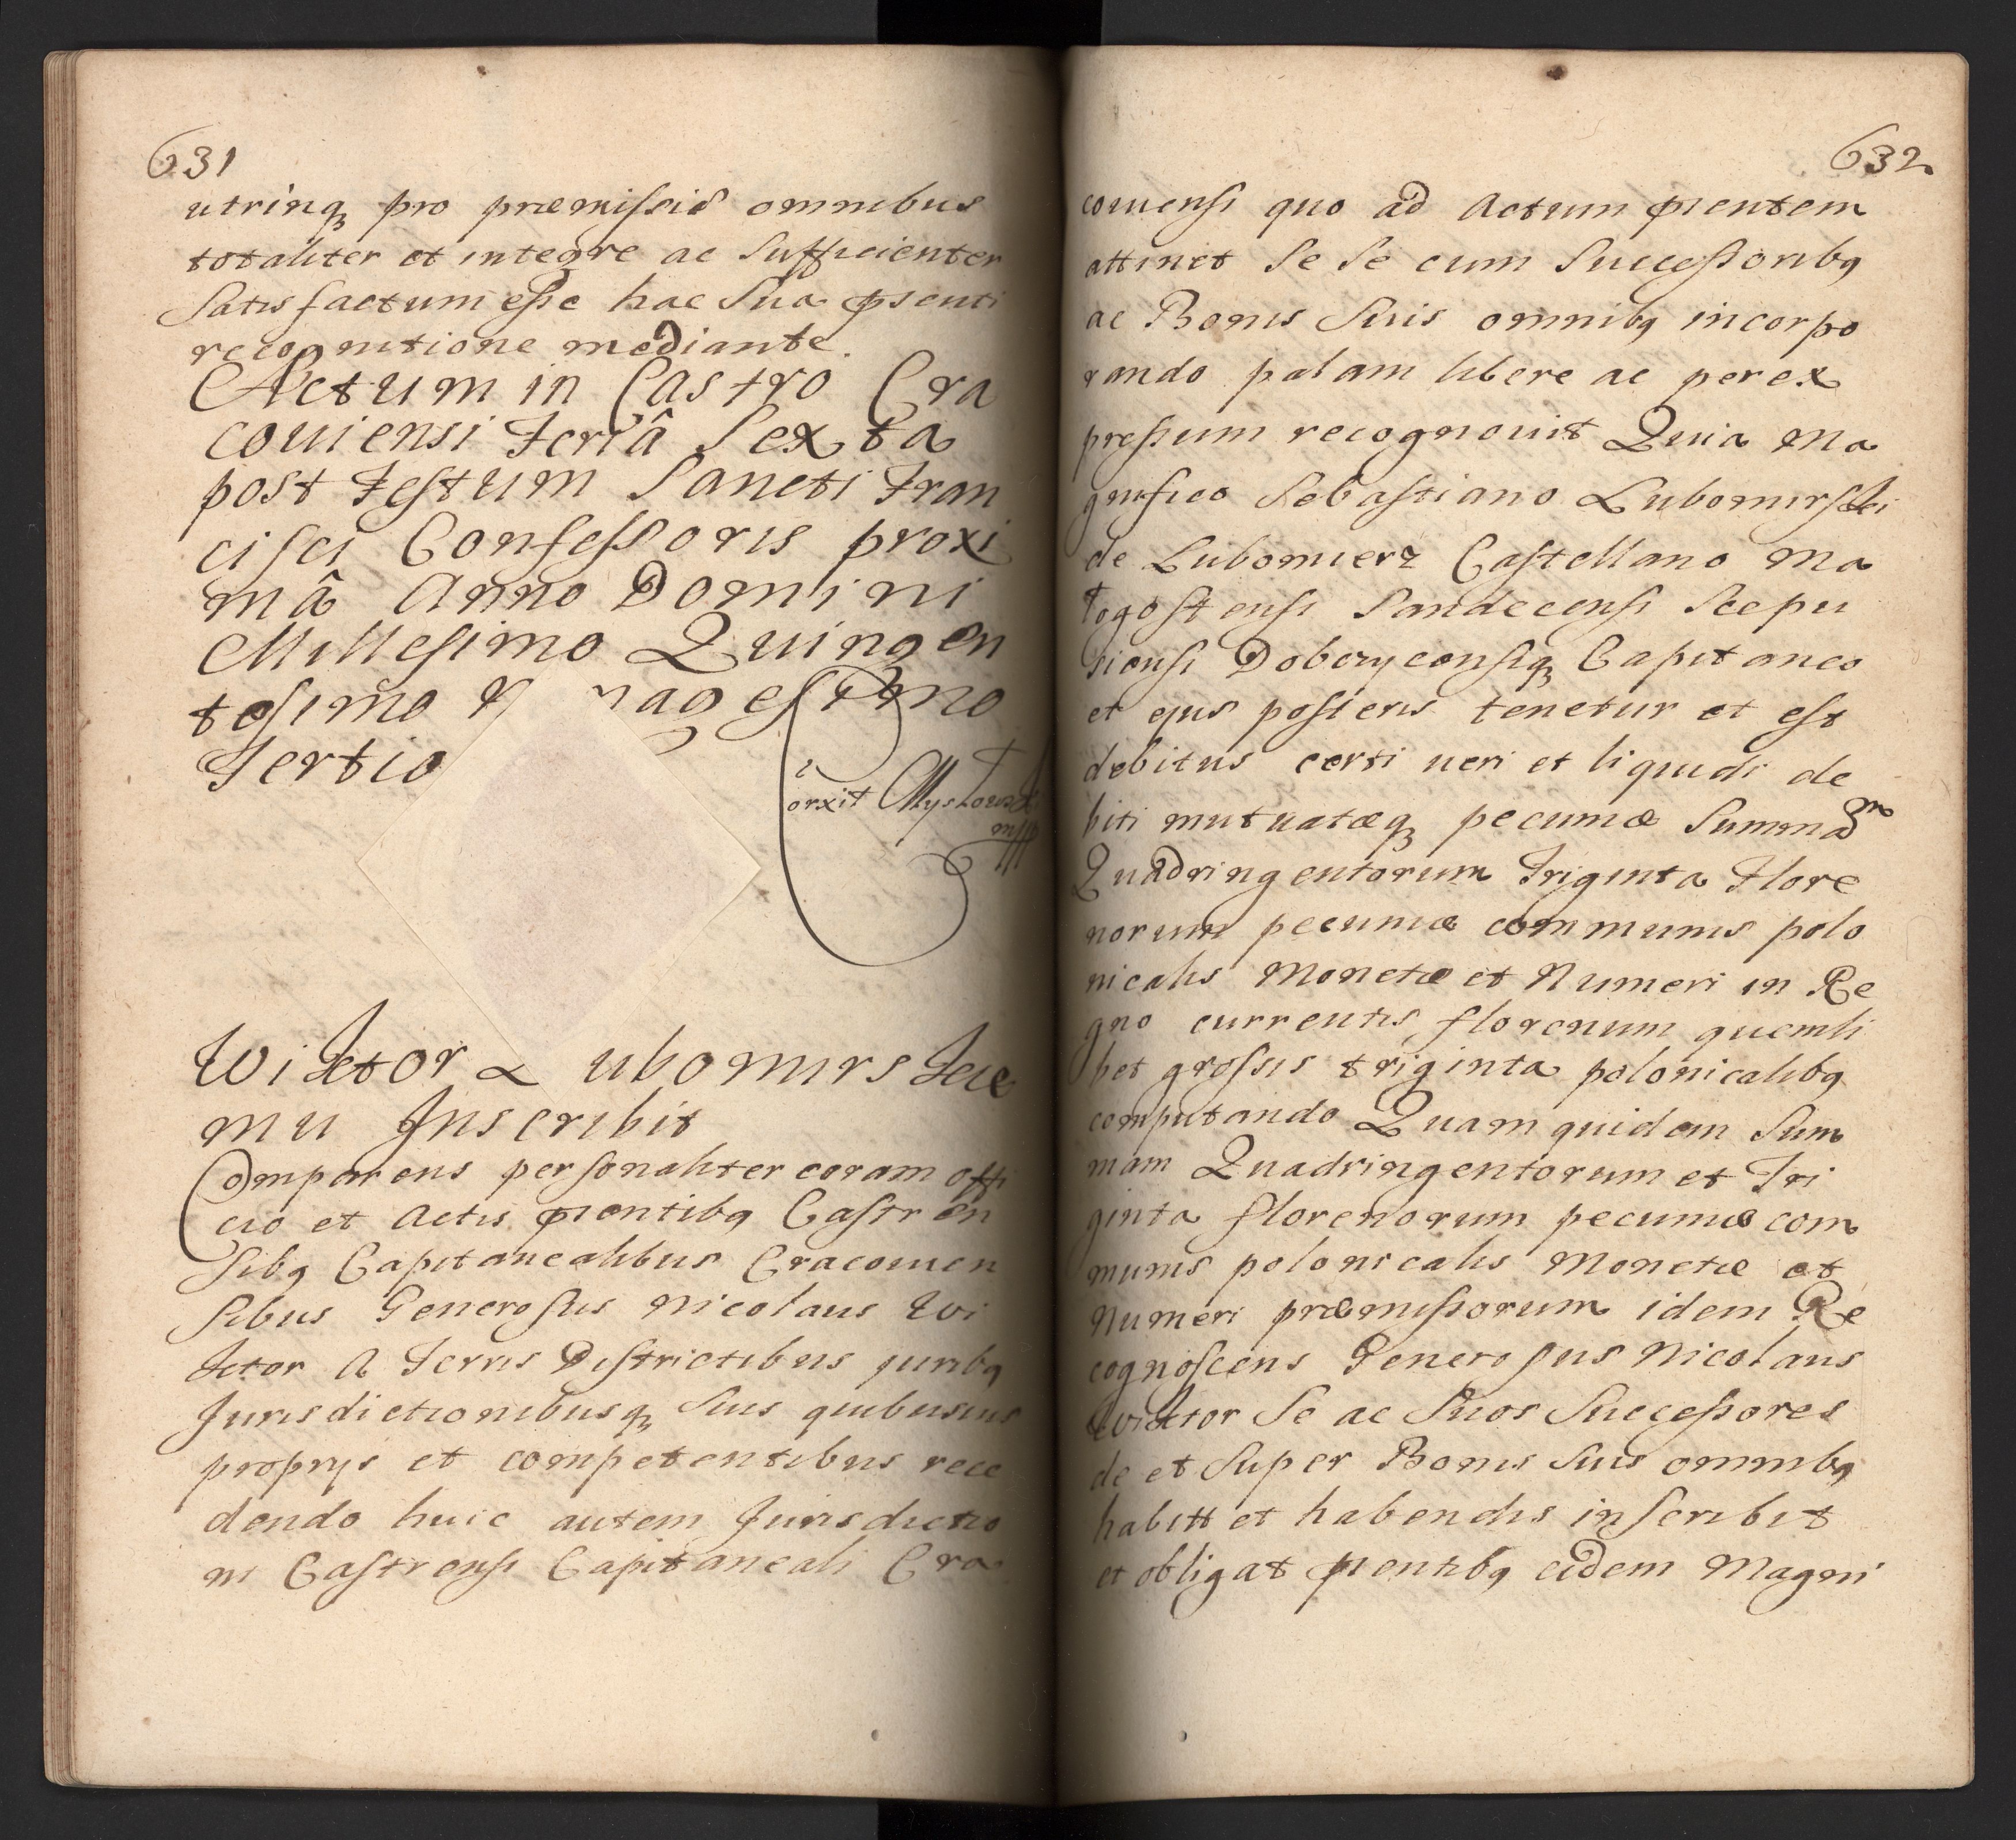 631
utrinq₃ pro præmissis omnibus
totaliter et integre ac Sufficienter
Satis factum esse hac Sua pñsenti
recognitione mediante.
Actum in Castro Cra
couiensi Feriâ Sexta
post Festum Sancti Fran
cisci Confessoris proxi
mâ Anno Domini
Millesimo Quingen
tesimo nagesimo
Tertio
orxit
Wiktor Lubomirskie
mu Inscribit
Comparens personaliter coram offi
cio et Actis pñentibq Castren
sibq Capitanealibus Cracouien
sibus Generosus Nicolaus Wi
ktor A Terris Districtibus juribq
Jurisdictionibusq₃ Suis quibusuis
proprys et competentibus rece
dendo huic autem Jurisdictio
ni Castrensi Capitaneali Cra
632
couiensi quo ad Actum pñentem
attinet Se Se cum Successoribq
ac Bonis Suis omnibq incorpo
rando palam libere ac per ex
pressum recognouit Quia Ma
gnifico Sebastiano Lubomirski
de Lubomierz Castellano Ma
logostensi Sandecensi Scepu
siensi Dobczyconsiq₃ Capitaneo
et ejus posteris tenetur et est
debitus certi ueri et liquidi de
biti mutuatæq₃ pecuniæ Summam
Quadringentorum Triginta Flore
norum pecuniæ communis polo
nicalis Monetæ et Numeri in Re
gno currentis florenum quemli
bet grossis triginta polonicalibq
computando Quam quidem Sum
mam Quadringentorum et Tri
ginta florenorum pecuniæ com
munis polonicalis Monetæ et
Numeri præmissorum idem Re
cognoscens Generosus Nicolaus
Wiktor Se ac Suos Successores
de et Super Bonis Suis omnibq
habitt et habendis inscribit
et obligat pñentibq eidem Magni